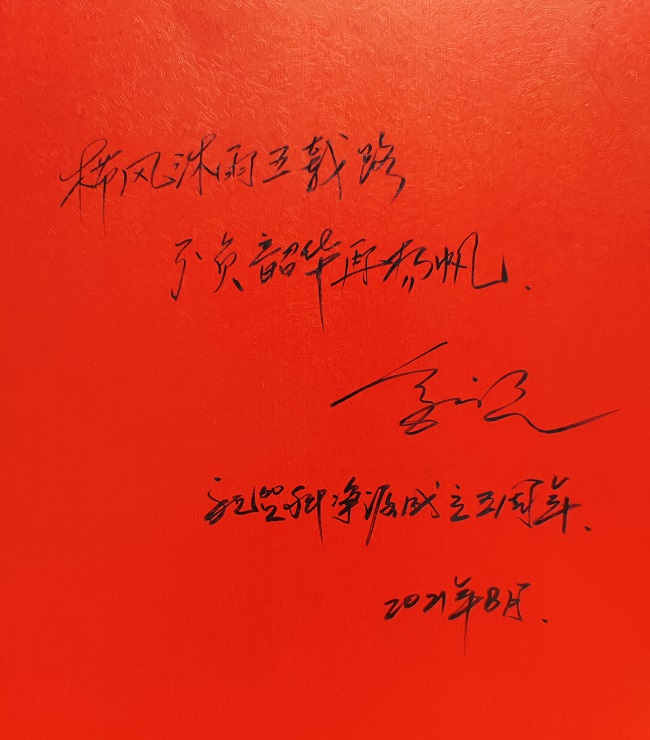 栉风沐雨五载路
不负韶华再扬帆.
祝贺科净源成立五周年.
2021年8月.